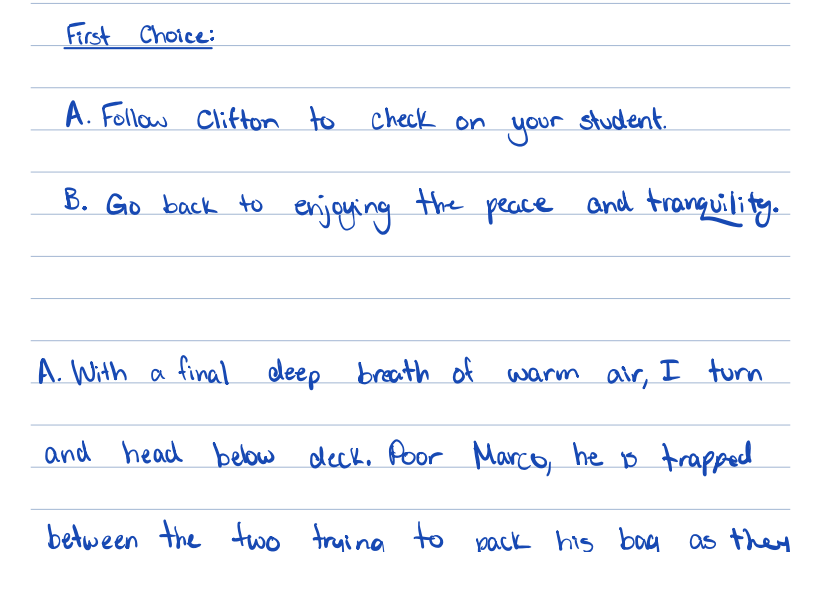 First Choice:
A. Follow Clifton to check on your student.
B. Go back to enjoying the peace and tranquility.
A. With a final deep breath of warm air, I turn
and head below deck. Poor Marco, he is trapped
between the two trying to pack his bag as they